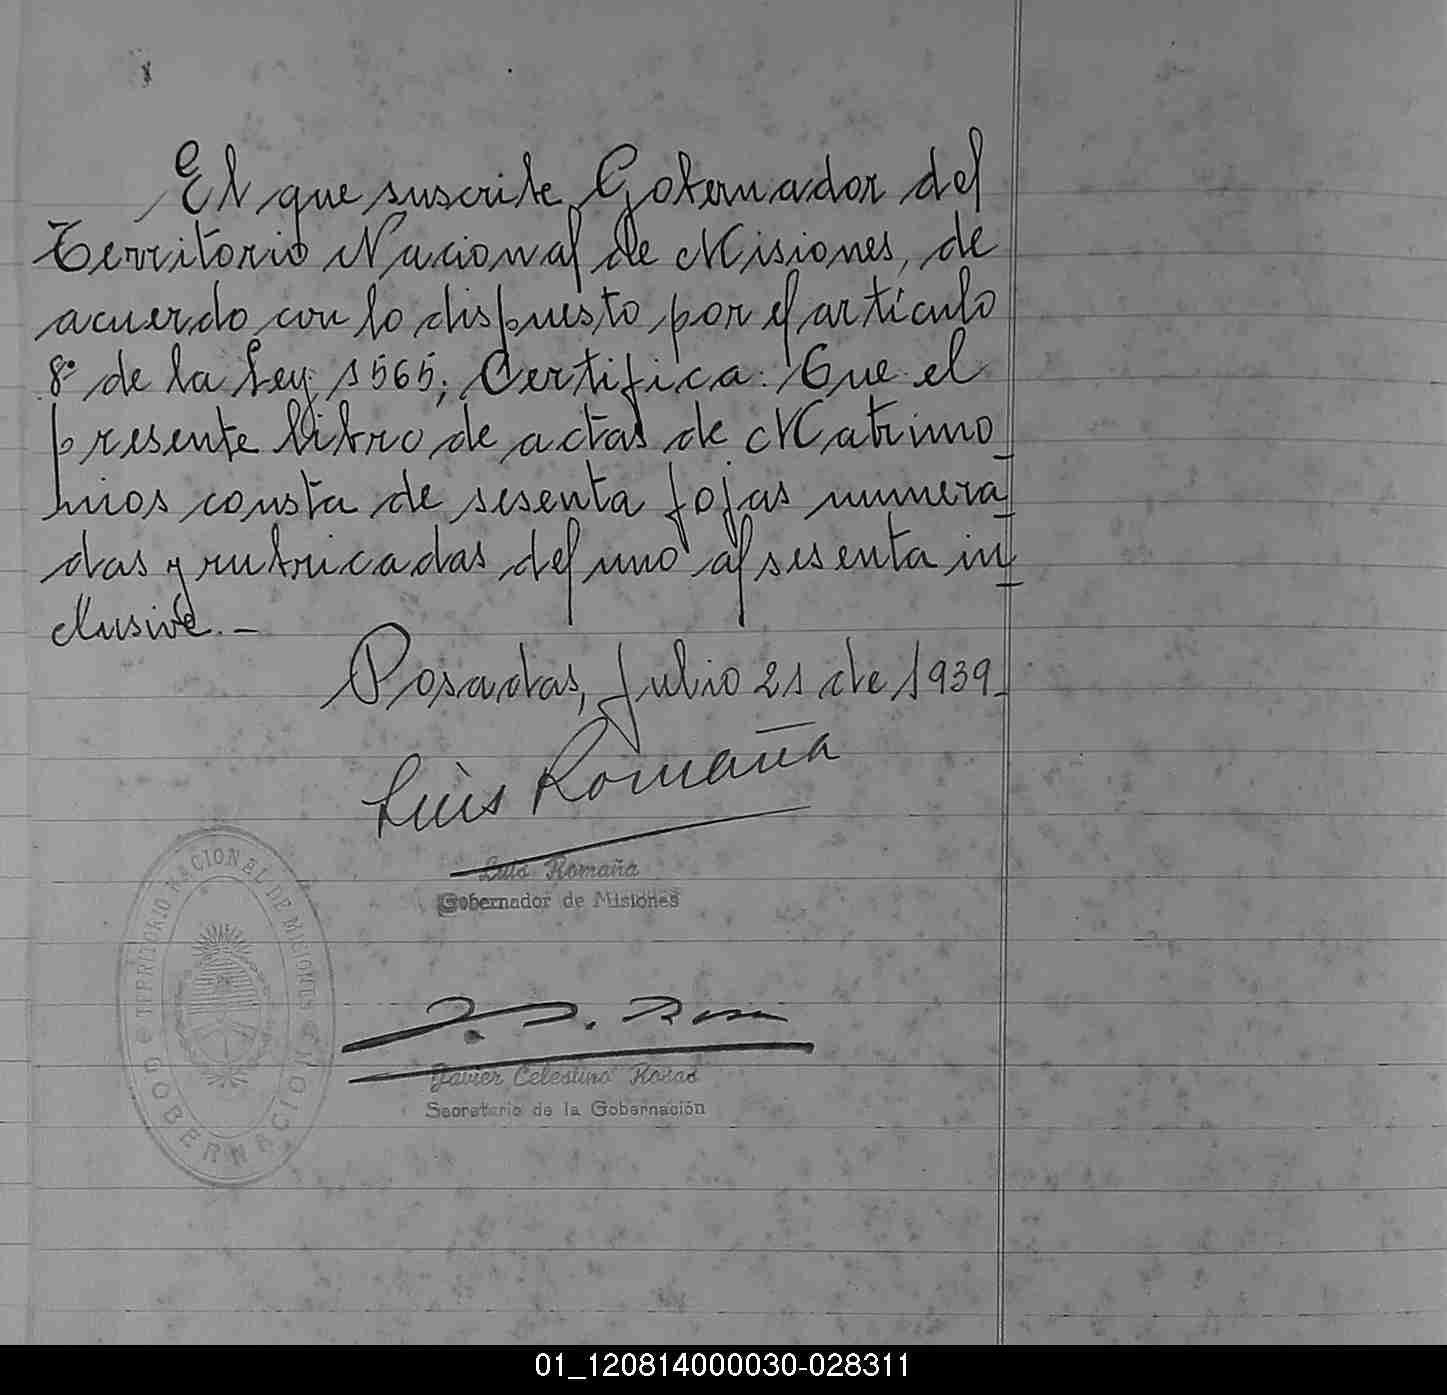 El que suscribe, Gobernador del
Territorio Nacional de Misiones, de
acuerdo con lo dispuesto por el artículo
8° de la Ley 1565; Certifica: Que el
presente libro de actas de Matrimo_
nios consta de sesenta fojas numera_
das y rubricadas del uno al sesenta in_
clusive.-
Posadas, Julio 21 de 1939.-
Luis Romaña
Luis Romaña
Gobernador de Misiones
TERRITORIO NACIONAL DE MISIONES
GOBERNACION
J. C. Rosas
Javier Celestino Rosas
Secretario de la Gobernación
01_120814000030-028311